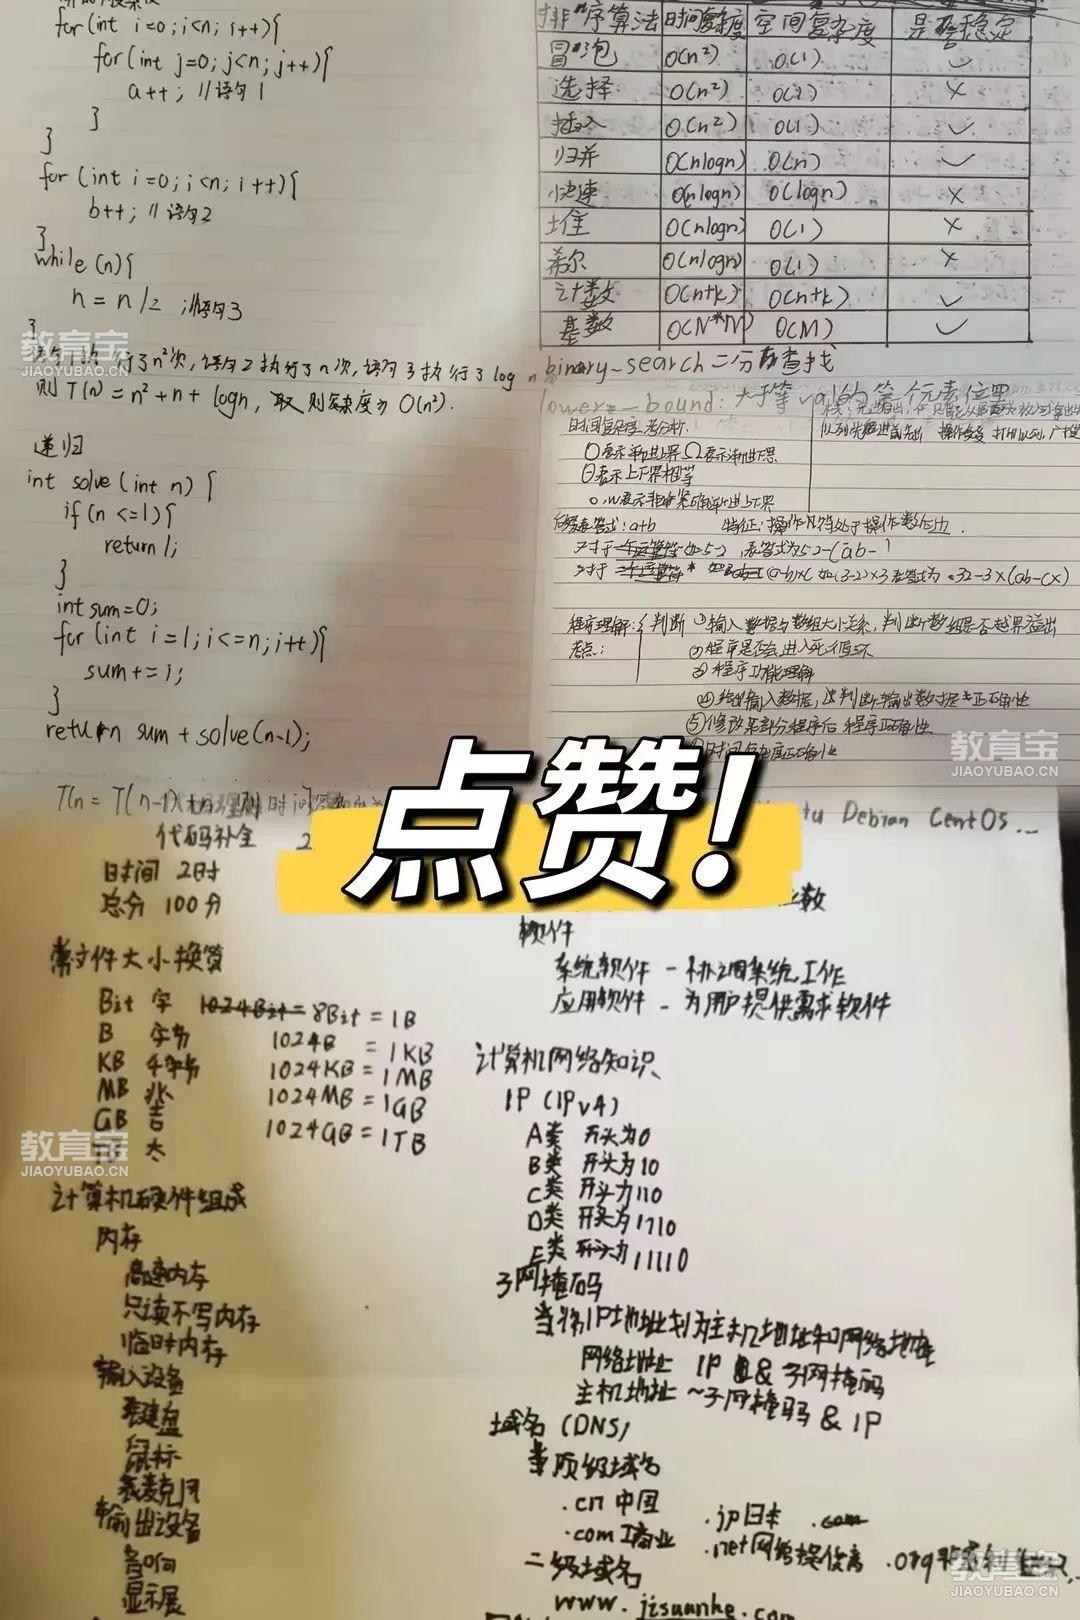 for(int i=0;i<n;i++){
for(int j=0;j<n;j++){
a++; //语句1
}
}
for(int i=0;i<n;i++){
b++; //语句2
}
while(n){
n=n/2 ;//语句3
}
行了n²次,语句2执行了n次,语句3执行了logn
则T(n)=n²+n+logn, 取 则复杂度为O(n²).
递归
int solve(int n){
if(n<=1){
return 1;
}
int sum=0;
for(int i=1;i<=n;i++){
sum+=1;
}
return sum+solve(n-1);
排序算法 时间复杂度 空间复杂度 是否稳定
冒泡 O(n²) O(1) ✓
选择 O(n²) O(1) ×
插入 O(n²) O(1) ✓
归并 O(nlogn) O(n) ✓
快速 O(nlogn) O(logn) ×
堆 O(nlogn) O(1) ×
希尔 O(nlogn) O(1) ×
计数 O(n+k) O(n+k) ✓
基数 O(N*M) O(M) ✓
binary_search 二分查找
lower_bound: 大于等于val的第一个元素位置
θ表示上下界相等
后缀表达式:a+b 特征:操作符处于操作数右边.
程序理解: 判断 ①输入数据与数组大小关系,判断数组是否越界溢出
考点: ②程序是否会进入死循环
③程序功能理解
④给出输入数据,判断输出数据正确性
⑤修改某部分程序后程序正确性
时间复杂度正确性
点赞!
代码补全
时间 2时
总分 100分
常文件大小换算
Bit 字 1024Bit=8Bit=1B
B 字节 1024B=1KB
KB 千字节 1024KB=1MB
MB 兆 1024MB=1GB
GB 吉 1024GB=1TB
TB 太
计算机硬件组成
内存
高速内存
只读不写内存
临时内存
输入设备
键盘
鼠标
麦克风
输出设备
音响
显示屏
tu Debian CentOS...
软件
系统软件 - 协调系统工作
应用软件 - 为用户提供需求软件
计算机网络知识
IP (IPv4)
A类 开头为0
B类 开头为10
C类 开头为110
D类 开头为1110
E类 开头为11110
子网掩码
当将IP地址划为主机地址和网络地址
网络地址 IP & 子网掩码
主机地址 ~子网掩码 & IP
域名 (DNS)
顶级域名
.cn 中国 .jp日本 .com
.com工商业 .net网络提供商 .org非盈利组织
二级域名
www.jisuanke.com
教育宝
JIAOYUBAO.CN
教育宝
JIAOYUBAO.CN
教育宝
JIAOYUBAO.CN
教育宝
JIAOYUBAO.CN